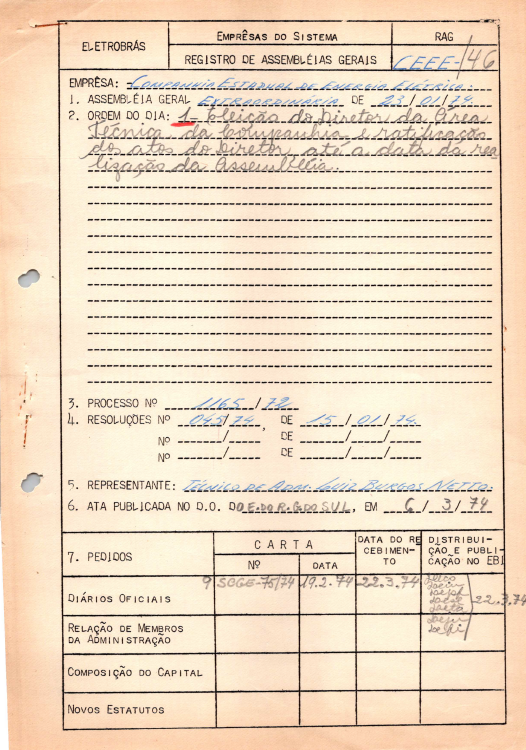 ELETROBRÁS
EMPRÊSAS DO SISTEMA
REGISTRO DE ASSEMBLÉIAS GERAIS
RAG
CEEE-/46
EMPRÊSA: COMPANHIA ESTADUAL DE ENERGIA ELÉTRICA.
1. ASSEMBLÉIA GERAL EXTRAORDINÁRIA DE 23/01/74.
2. ORDEM DO DIA: 1- Eleição do Diretor da Área
Técnica da Companhia e ratificação
dos atos do Diretor, até a data da rea
lização da Assembléia.
3. PROCESSO Nº 1165/72
4. RESOLUÇÕES Nº 045/74, DE 15/01/74.
Nº / DE / /
Nº / DE / /
5. REPRESENTANTE: TÉCNICO DE ADM. LUIZ BURGOS NETTO.
6. ATA PUBLICADA NO D.O. DO E.DO R.G.DO SUL, EM 6/3/74
7. PEDIDOS
CARTA
Nº
DATA
DATA DO RE
CEBIMEN-
TO
DISTRIBUI-
ÇÃO E PUBLI-
CAÇÃO NO EBI
DIÁRIOS OFICIAIS
9 SCGE-75/74 19.2.74 22.3.74
22.3.74
RELAÇÃO DE MEMBROS
DA ADMINISTRAÇÃO
COMPOSIÇÃO DO CAPITAL
NOVOS ESTATUTOS